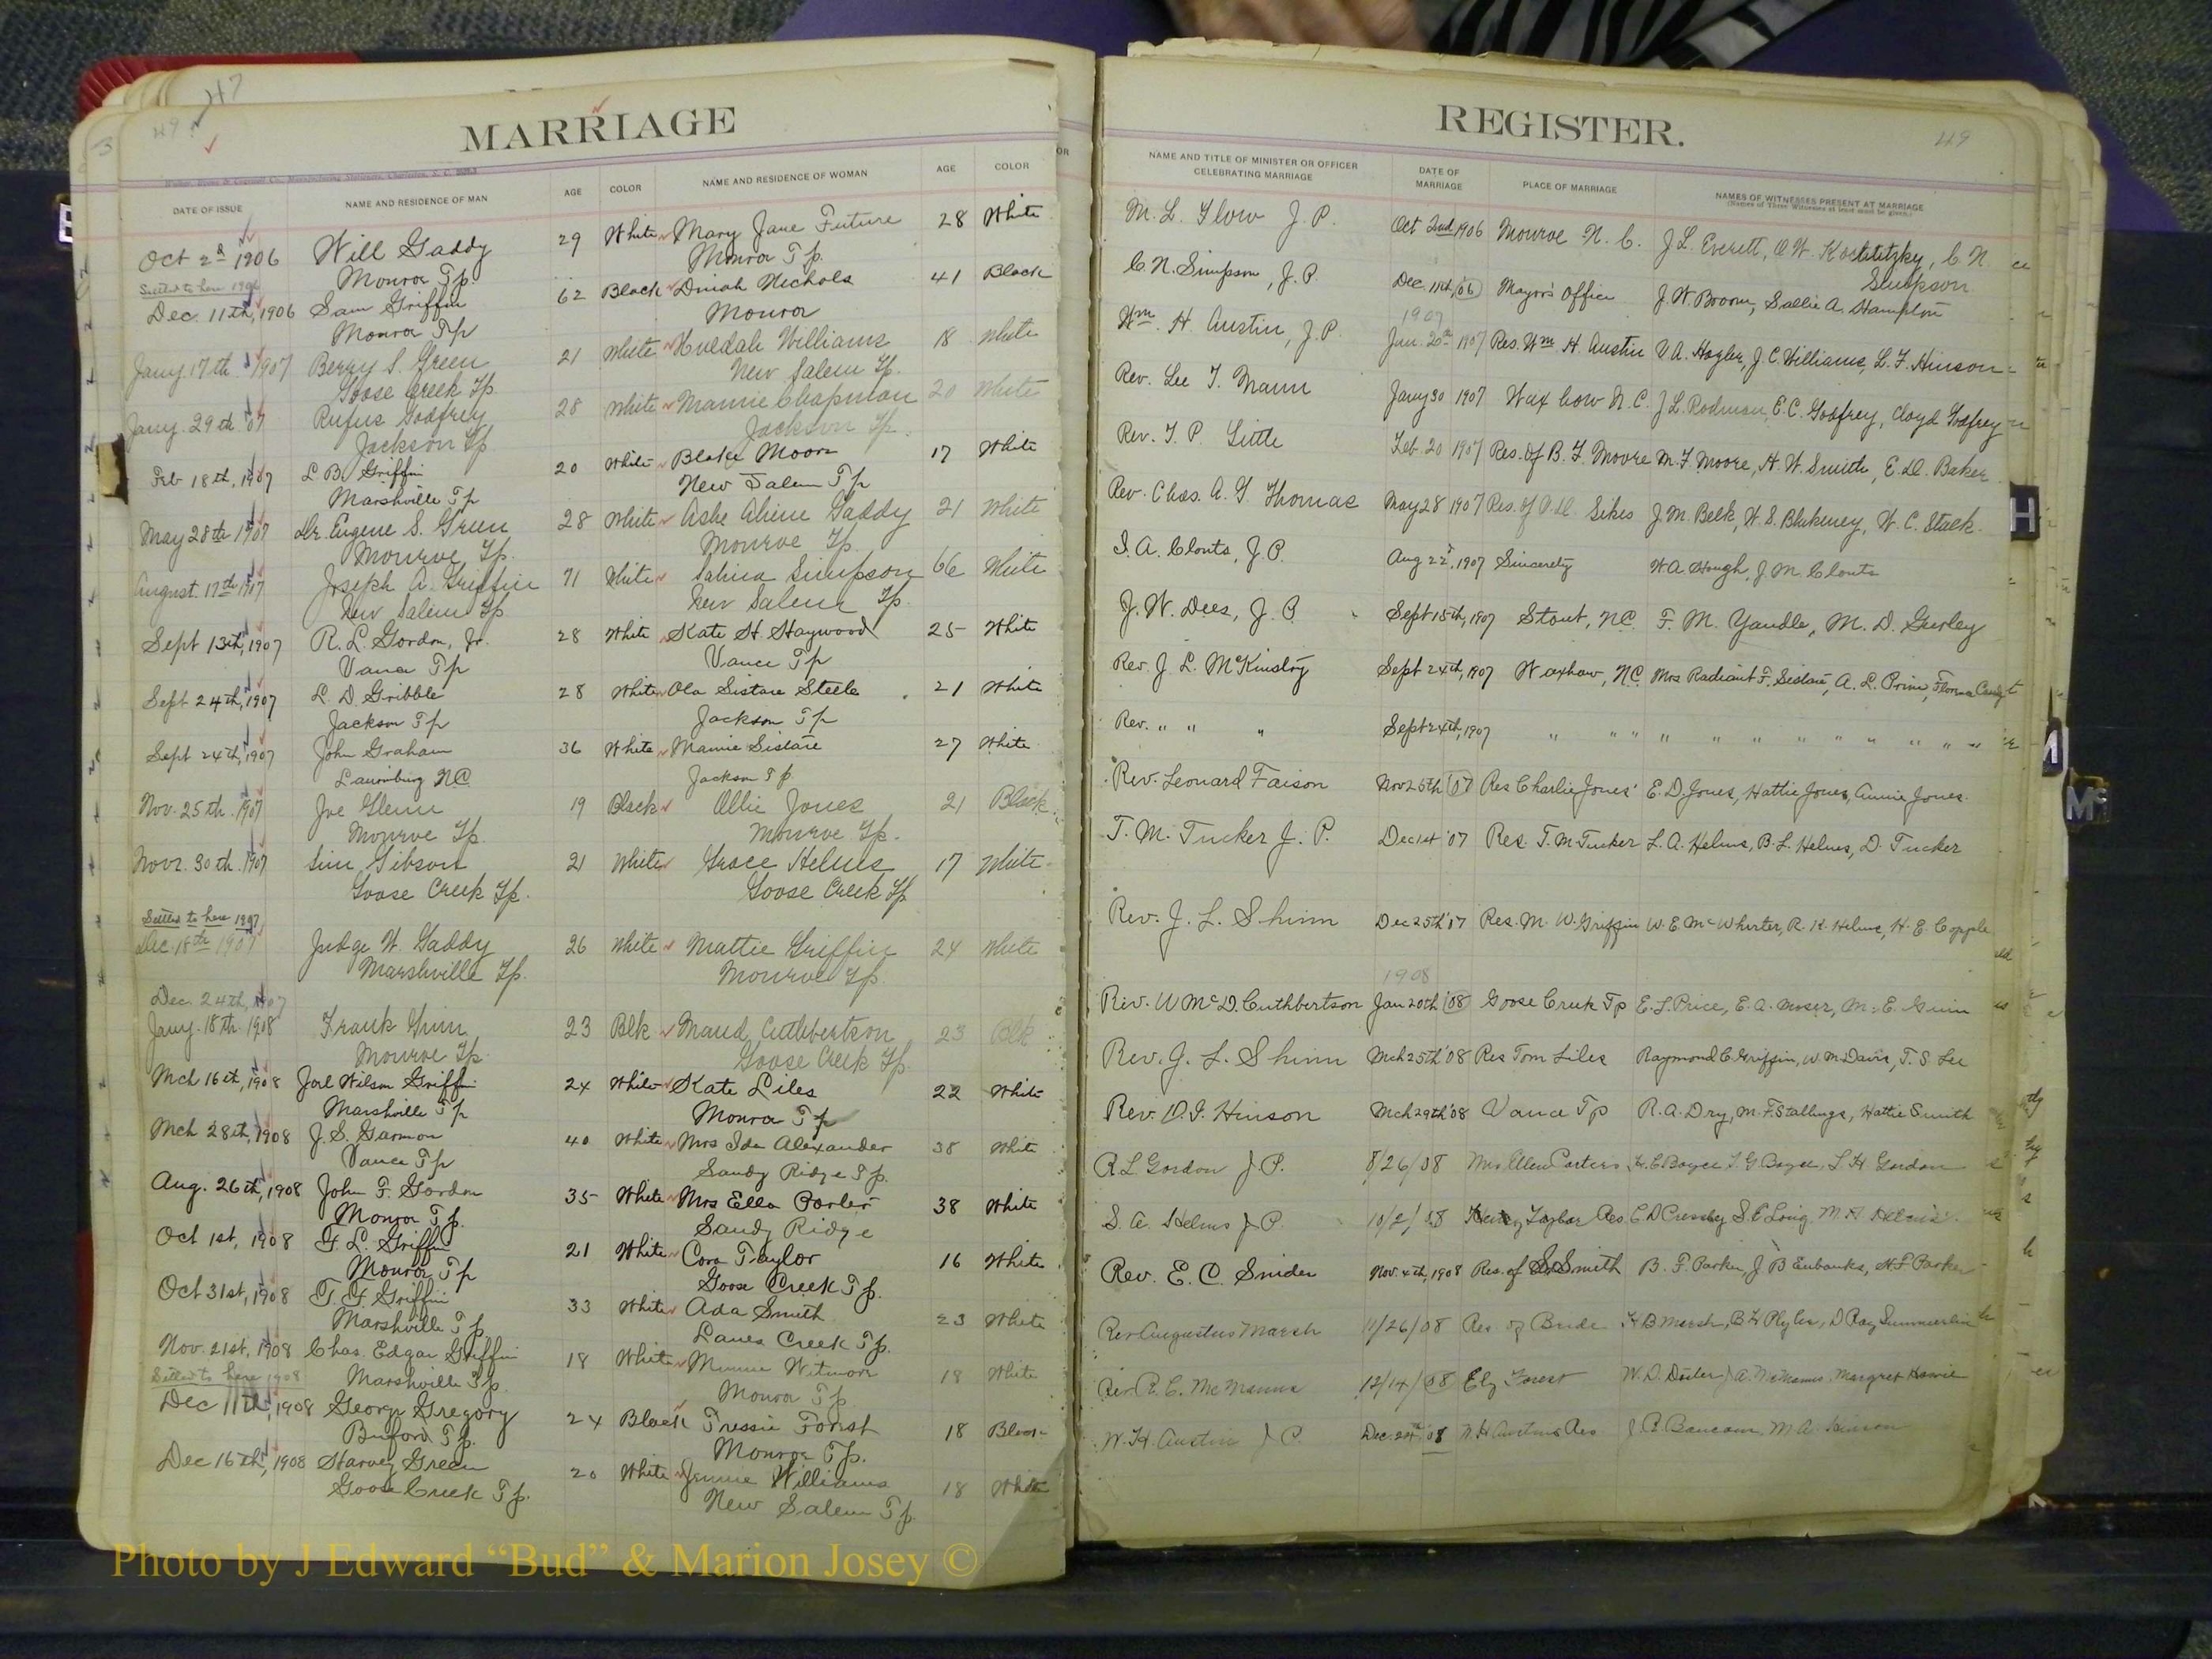 47
49
MARRIAGE
DATE OF ISSUE NAME AND RESIDENCE OF MAN AGE COLOR NAME AND RESIDENCE OF WOMAN AGE COLOR
Oct 2d 1906 Will Gaddy 29 White Mary Jane Future 28 White
Monroe Tp. Monroe Tp.
Settled to here 1906
Dec. 11th, 1906 Sam Griffin 62 Black Dinah Nichols 41 Black
Monroe Tp Monroe
Jany. 17th 1907 Berry S. Green 21 White Huldah Williams 18 White
Goose Creek Tp. New Salem Tp.
Jany. 29th '07 Rufus Godfrey 28 White Mamie Chapman 20 White
Jackson Tp Jackson Tp.
Feb 18th, 1907 L B. Griffin 20 White Blake Moore 17 White
Marshville Tp New Salem Tp
May 28th 1907 Dr. Eugene S. Green 28 White Ashe Aline Gaddy 21 White
Monroe Tp. Monroe Tp.
August 17th 1907 Joseph A. Griffin 71 White Salina Simpson 66 White
New Salem Tp New Salem Tp.
Sept 13th, 1907 R. L. Gordon, Jr. 28 White Kate H. Haywood 25 White
Vance Tp Vance Tp
Sept 24th, 1907 L D Gribble 28 White Ola Sistare Steele 21 White
Jackson Tp Jackson Tp
Sept 24th, 1907 John Graham 36 White Mamie Sistare 27 White
Laurinburg NC Jackson Tp
Nov. 25th 1907 Joe Glenn 19 Black Ollie Jones 21 Black
Monroe Tp. Monroe Tp.
Novr. 30th 1907 Sim Gibson 21 White Grace Helms 17 White
Goose Creek Tp. Goose Creek Tp
Settled to here 1907
Dec. 18th 1907 Judge W. Gaddy 26 White Mattie Griffin 24 White
Marshville Tp. Monroe Tp.
Dec. 24th, 1907
Jany. 18th 1908 Frank Guin 23 Blk Maud Cuthbertson 23 Blk
Monroe Tp. Goose Creek Tp
Mch 16th, 1908 Joel Wilson Griffin 24 White Kate Liles 22 White
Marshville Tp Monroe Tp
Mch 28th, 1908 J. S. Garmon 40 White Mrs Ida Alexander 38 White
Vance Tp Sandy Ridge Tp.
Aug. 26th, 1908 John F. Gordon 35 White Mrs Ella Porter 38 White
Monroe Tp. Sandy Ridge
Oct 1st, 1908 L. Griffin 21 White Cora Taylor 16 White
Monroe Tp Goose Creek Tp.
Oct 31st, 1908 Griffin 33 White Ada Smith 23 White
Marshville Tp Lanes Creek Tp.
Nov. 21st, 1908 Chas. Edgar Griffin 18 White Minnie 18 White
Settled to here 1908 Marshville Tp. Monroe Tp
Dec 11th, 1908 George Gregory 24 Black Tressie Forest 18 Black
Buford Tp. Monroe Tp.
Dec 16th, 1908 Harvey Green 20 White Jennie Williams 18 White
Goose Creek Tp. New Salem Tp.
REGISTER.
119
NAME AND TITLE OF MINISTER OR OFFICER CELEBRATING MARRIAGE DATE OF MARRIAGE PLACE OF MARRIAGE NAMES OF WITNESSES PRESENT AT MARRIAGE
(Names of Three Witnesses at least must be given.)
M. L. Flow J. P. Oct 2nd 1906 Monroe N. C. J L. Everett, O W. Kochtitzky, C. N
Simpson
C. N. Simpson, J. P. Dec. 11th, 06 Mayor's Office J. W. Broom, Sallie A. Hampton
1907
Wm. H. Austin, J. P. Jan. 20th 1907 Res. Wm H. Austin V. A. Hagler, J. C. Williams, L. F. Hinson
Rev. Lee T. Mann Jany 30 1907 Waxhaw N. C. J L. Rodman, E. C. Godfrey, Cloyd Godfrey
Rev. T. P. Little Feb. 20 1907 Res. of B. F. Moore M. F. Moore, H. W. Smith, E. D. Baker
Rev. Chas. A. G. Thomas May 28 1907 Res. of Sikes J. M. Belk, W. S. Blakeney, W. C. Stack.
I. A. Clontz, J. P. Aug 22, 1907 Sincerity W. A. Hough, J. M. Clontz
J. W. Dees, J. P. Sept 15th, 1907 Stout, NC. F. M. Yandle, M. D. Gurley
Rev. J. L. McKinstry Sept 24th, 1907 Waxhaw, NC. Mrs Radiant F. Sistare, A. L. Prim,
Rev. " " " Sept 24th, 1907 " " " " " " " " " " " "
Rev. Leonard Faison Nov 25th 07 Res Charlie Jones' E. D. Jones, Hattie Jones, Annie Jones.
T. M. Tucker J. P. Dec 1st '07 Res. T. M. Tucker L. A. Helms, B. L. Helms, D. Tucker
Rev. J. L. Shinn Dec 25th '07 Res. M. W. Griffin W. E. McWhirter, R. K. Helms, H. E. Copple
1908
Rev. W McD. Cuthbertson Jan 20th '08 Goose Creek Tp E. L. Price, E. A. Moser, M. E. Guin
Rev. J. L. Shinn Mch 25th '08 Res Tom Liles Raymond C. Griffin, W. M. Davis, T. S. Lee
Rev. D. I. Hinson Mch 29th '08 Vance Tp R. A. Dry, M. F. Stallings, Hattie Smith
R L Gordon J. P. 8/26/08 Mrs Ellen Porters H. C Boyce T. G Boyce, L. H Gordon
S. A. Helms J. P. 10/2/08 Henry Taylor Res. C. D Cressley S. E Long M. A Helms
Rev. E. C. Snider Nov. 4th, 1908 Res. of Smith B. F. Parker, J B Eubanks, H F Parker
Rev Augustus Marsh 11/26/08 Res of Bride H B Marsh, B H Plyler, D Ray Summerlin
Rev. R. C. McManus 12/14/08 Ely Forest W. D. A. McManus, Margret Howie
W. H. Austin J P. Dec. 20th 08 W H Austins Res J. R. Baucom, M A Hinson
H
M
Mc
Photo by J Edward “Bud” & Marion Josey ©